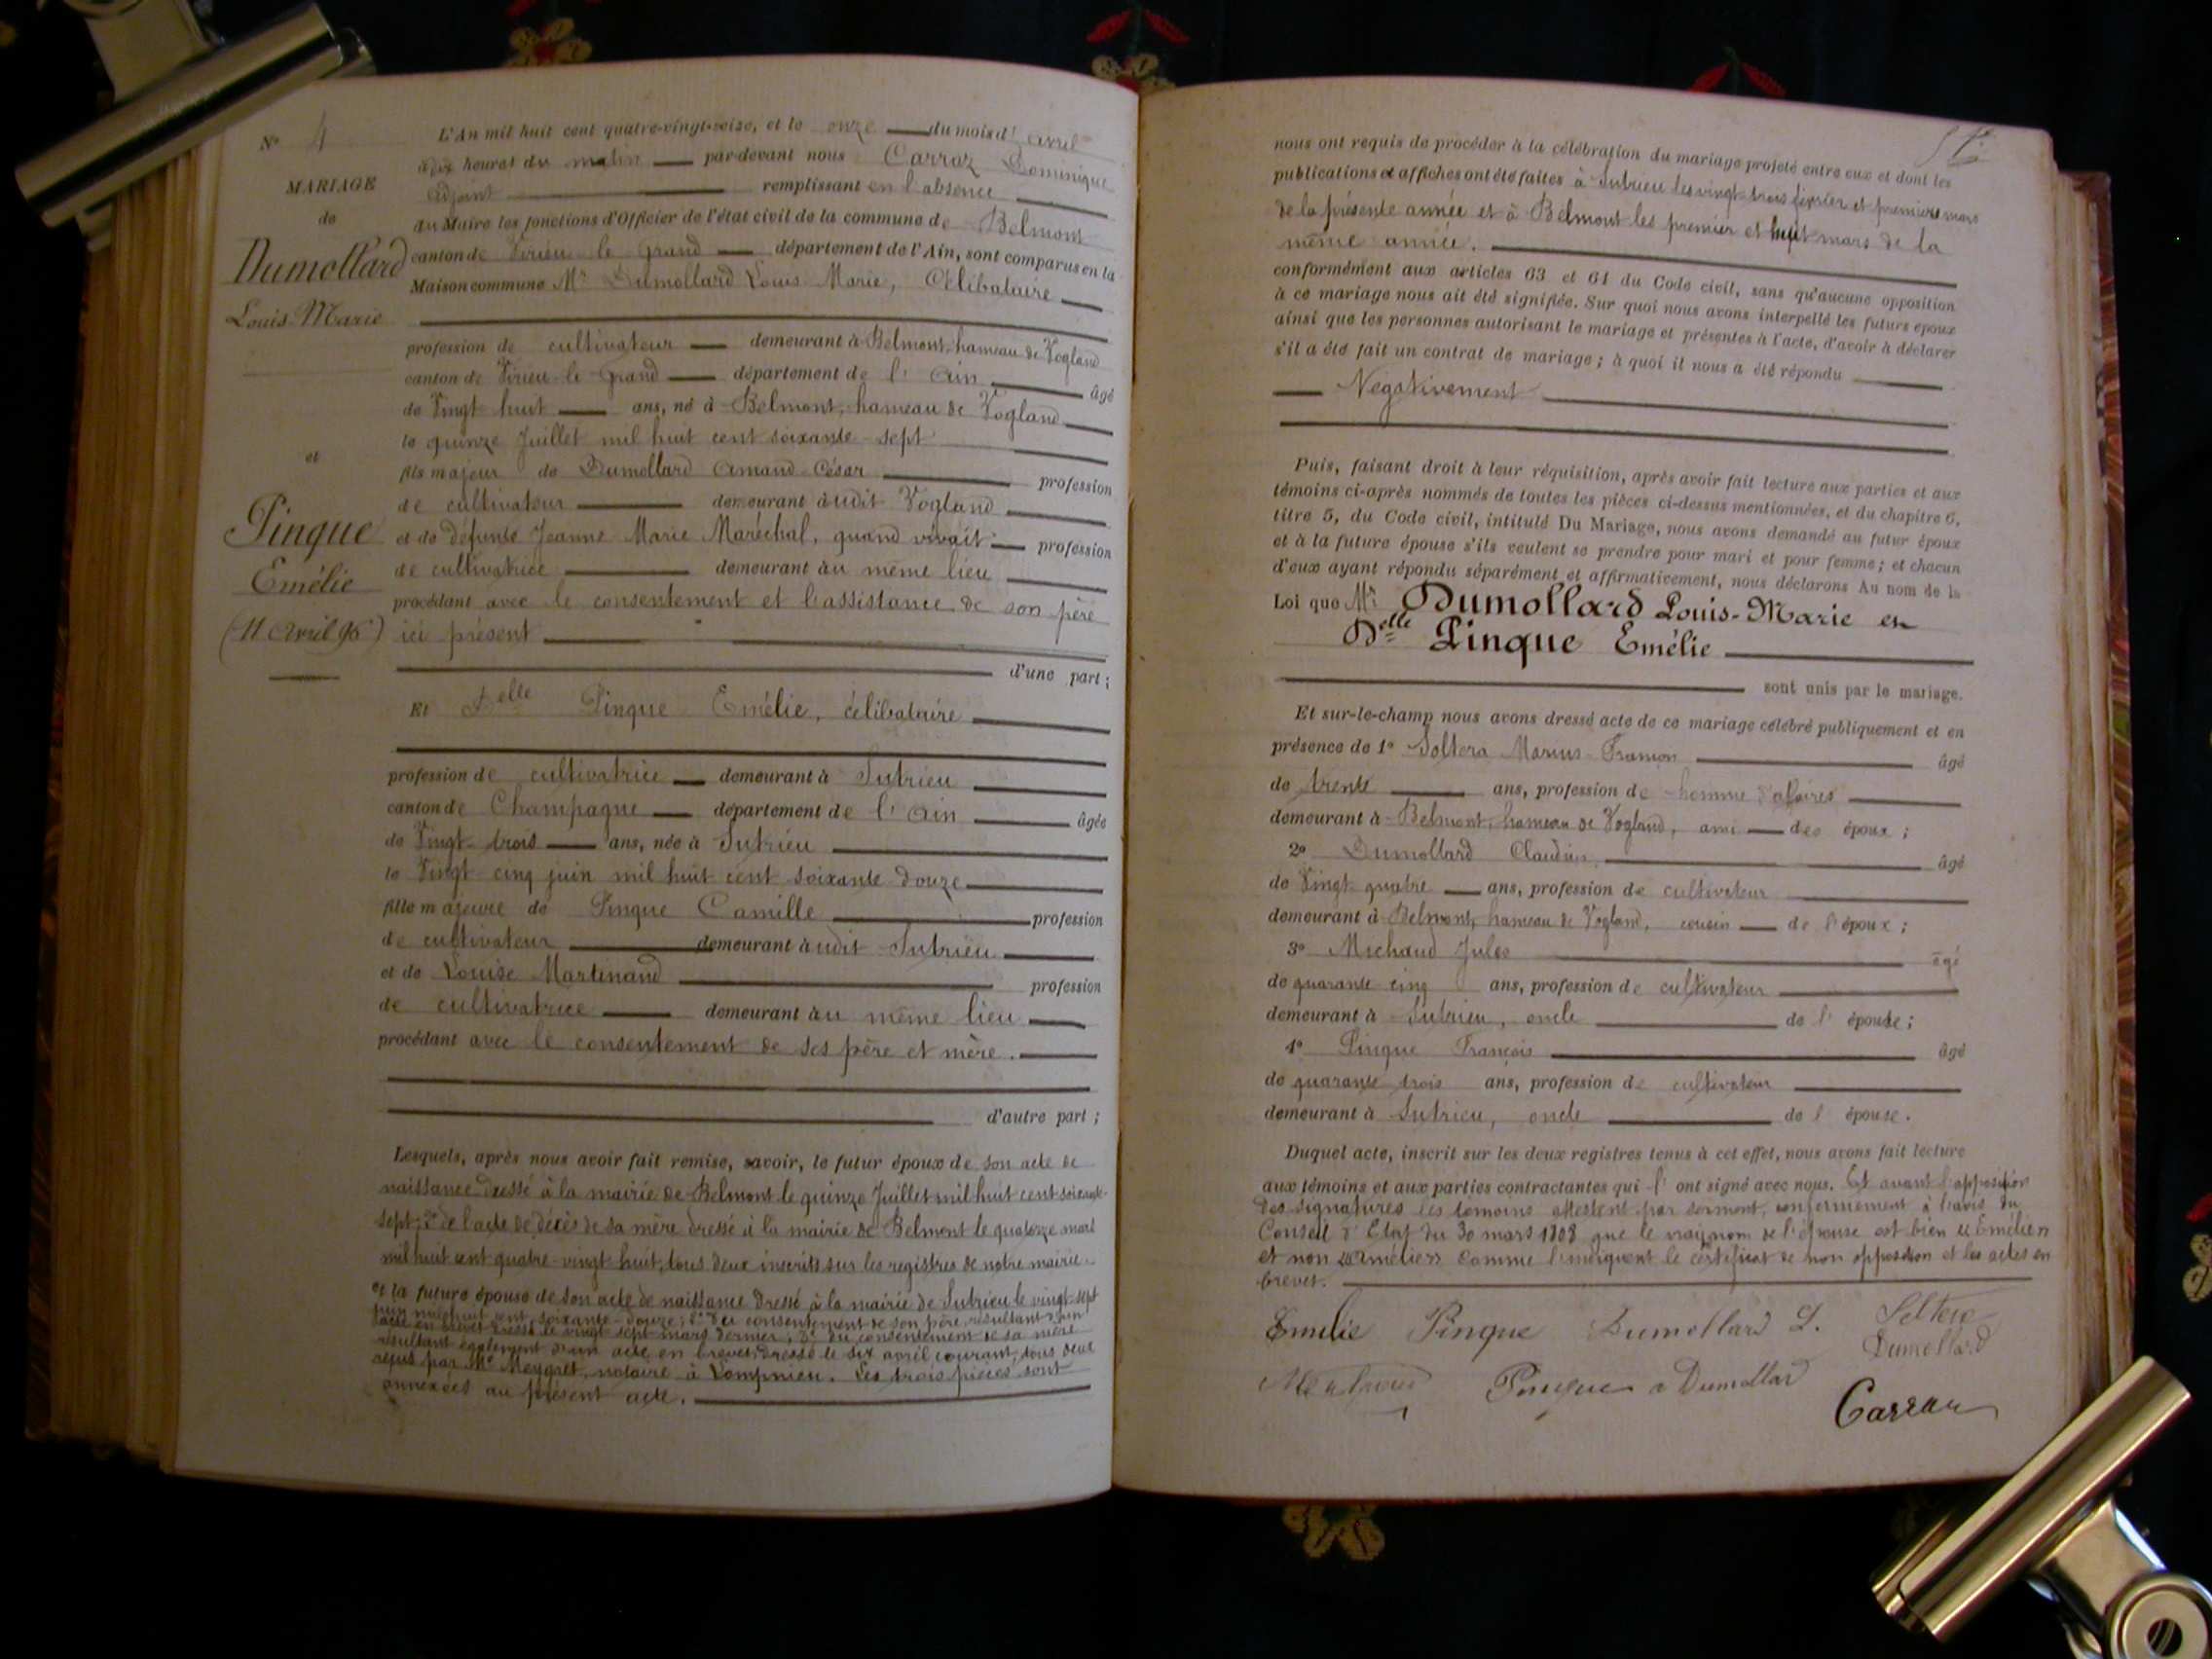 N° 4
MARIAGE
de
Dumollard
Louis-Marie
et
Pinque
Emélie
(11 Avril 96)
L'An mil huit cent quatre-vingt-seize, et le onze du mois d'avril
à dix heures du matin par-devant nous Carraz Dominique
adjoint remplissant en l'absence
du Maire les fonctions d'Officier de l'état civil de la commune de Belmont
canton de Virieu le Grand département de l'Ain, sont comparus en la
Maison commune Mr Dumollard Louis Marie, Célibataire
profession de cultivateur demeurant à Belmont, hameau de Vogland
canton de Virieu-le-Grand département de l'Ain âgé
de Vingt huit ans, né à Belmont, hameau de Vogland
le quinze Juillet mil huit cent soixante-sept
fils majeur de Dumollard Amand-César profession
de cultivateur demeurant àudit Vogland
et de défunte Jeanne Marie Maréchal, quand vivait profession
de cultivatrice demeurant àu même lieu
procédant avec le consentement et l'assistance de son père
ici présent
d'une part;
Et Delle Pinque Emélie, célibataire
profession de cultivatrice demeurant à Sutrieu
canton de Champagne département de l'Ain âgée
de Vingt-trois ans, née à Sutrieu
le Vingt cinq juin mil huit cent soixante douze
fille majeure de Pinque Camille profession
de cultivateur demeurant àudit Sutrieu
et de Louise Martinand profession
de cultivatrice demeurant àu même lieu
procédant avec le consentement de ses père et mère.
d'autre part;
Lesquels, après nous avoir fait remise, savoir, le futur époux de son acte de
naissance dressé à la mairie de Belmont le quinze Juillet mil huit cent soixante-
sept; 2° de l'acte de décès de sa mère dressé à la mairie de Belmont le quatorze mars
mil huit cent quatre-vingt huit, tous deux inscrits sur les registres de notre mairie.
et la future épouse de son acte de naissance dressé à la mairie de Sutrieu le vingt-sept
juin mil huit cent soixante-douze; 2° du consentement de son père résultant d'un
acte en brevet dressé le vingt sept mars dernier; 3° du consentement de sa mère
résultant également d'un acte en brevet dressé le six avril courant, tous deux
reçus par Me Meygret, notaire à Lompnieu. Les trois pièces sont
annexées au présent acte.
nous ont requis de procéder à la célébration du mariage projeté entre eux et dont les
publications et affiches ont été faites à Sutrieu les vingt-trois février et premier mars
de la présente année et à Belmont les premier et huit mars de la
même année.
conformément aux articles 63 et 64 du Code civil, sans qu'aucune opposition
à ce mariage nous ait été signifiée. Sur quoi nous avons interpellé les futurs époux
ainsi que les personnes autorisant le mariage et présentes à l'acte, d'avoir à déclarer
s'il a été fait un contrat de mariage; à quoi il nous a été répondu
Négativement
Puis, faisant droit à leur réquisition, après avoir fait lecture aux parties et aux
témoins ci-après nommés de toutes les pièces ci-dessus mentionnées, et du chapitre 6,
titre 5, du Code civil, intitulé Du Mariage, nous avons demandé au futur époux
et à la future épouse s'ils veulent se prendre pour mari et pour femme; et chacun
d'eux ayant répondu séparément et affirmativement, nous déclarons Au nom de la
Loi que Mr Dumollard Louis-Marie et
Delle Pinque Emélie
sont unis par le mariage.
Et sur-le-champ nous avons dressé acte de ce mariage célébré publiquement et en
présence de 1° Soltera Marius âgé
de trente ans, profession de homme d'afaires
demeurant à Belmont, hameau de Vogland, ami des époux;
2° Dumollard Claudius âgé
de Vingt-quatre ans, profession de cultivateur
demeurant à Belmont, hameau de Vogland, cousin de l'époux;
3° Michaud Jules âgé
de quarante cinq ans, profession de cultivateur
demeurant à Sutrieu, oncle de l'épouse;
4° Pinque François âgé
de quarante trois ans, profession de cultivateur
demeurant à Sutrieu, oncle de l'épouse.
Duquel acte, inscrit sur les deux registres tenus à cet effet, nous avons fait lecture
aux témoins et aux parties contractantes qui l'ont signé avec nous. Et avant l'apposition
des signatures les témoins attestent par serment, conformément à l'avis du
Conseil d'Etat du 30 mars 1808 que le vrai nom de l'épouse est bien "Emélie"
et non "Amélie" comme l'indiquent le certificat de non opposition et les actes en
brevet.
Emélie Pinque Dumollard L. Soltera
Dumollard
Pinque Dumollard
Carraz